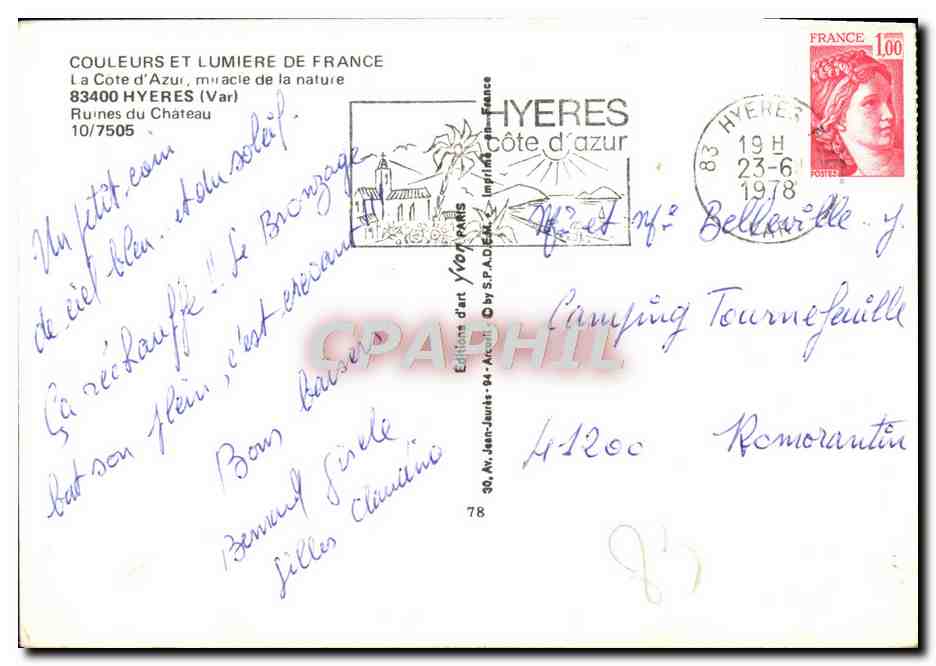 COULEURS ET LUMIERE DE FRANCE
La Cote d'Azur, miracle de la nature
83400 HYERES (Var)
Ruines du Château
10/7505
Un petit coin
de ciel bleu.. et du soleil.
Ça réchauffe!! Le Bronzage
bat son plein, c'est crevant!!
Bons baisers
Bernard Gisele
Gilles Claudine
Editions d'art Yvon PARIS
30, Av. Jean-Jaurès - 94 - Arcueil - © by S.P.A.D.E.M. - Imprimé en France
78
HYERES
côte d'azur
83 HYERES
19 H
23-6
1978
VAR
FRANCE 1,00
POSTES
Mr et Me Belleville J.
Camping Tournefeuille
41200 Romorantin
83
CPAPHIL